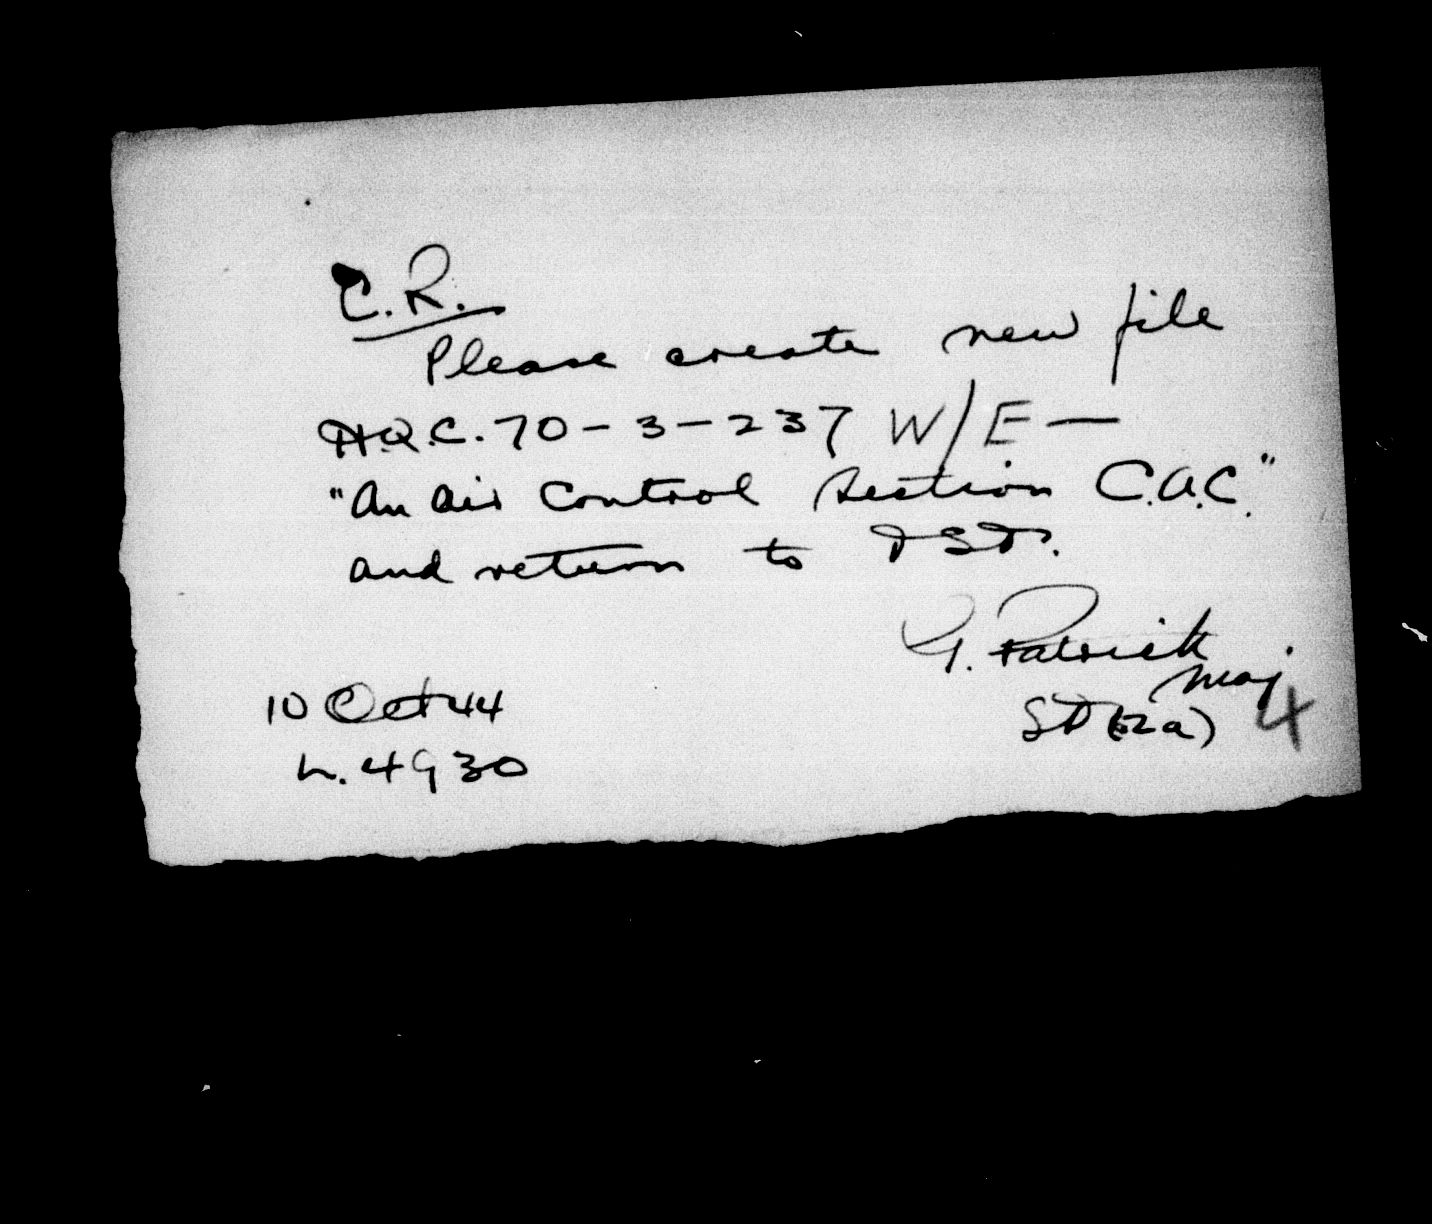 C.R.
Please create new file
H.Q.C. 70-3-237 W/E —
"An Air Control Section C.A.C."
and return to DSD.
G. Patrick
Maj
10 Oct 44
SD (2a) 4
L. 4930